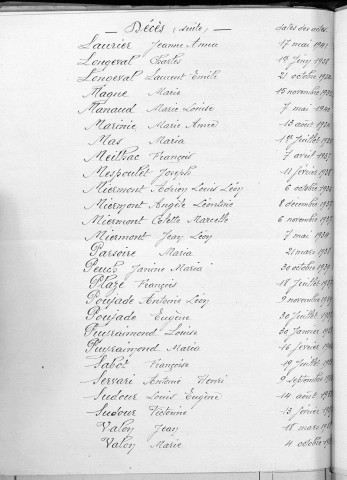 — Décès (suite) — dates des actes.
Laurier Jeanne Anna 17 mai 1941
Longeval Charles
Longeval Laurent Emile 21 octobre
Magne Marie 15 novembre
Manaud Marie Louise 7 mai 1940
Marinie Marie Anne 13 août
Mas Maria Juillet
Meilhac François 7 avril 1937
Mespoulet Joseph 11 février
Miermont Adrien Louis Léon 6 octobre
Miermont Angèle Léontine 8 décembre
Miermont Colette Marcelle 6 novembre
Miermont Jean Léon 7 mai 1934
Parsoire Maria 21 mars
Peuch Janine Maria 30 octobre
Plazé François 18 Juillet
Poujade Antoine Léon 9 novembre
Poujade Eugène 30 Juillet
Puyraimond Louise 30 Janvier
Puyraimond Maria 16 février
Sabot Françoise 19 Juillet
Servari Antoine Henri 9 septembre
Sudour Louis Eugène 14 août
Sudour Victorine 13 février
Valon Jean 18 mars
Valon Marie 4 octobre